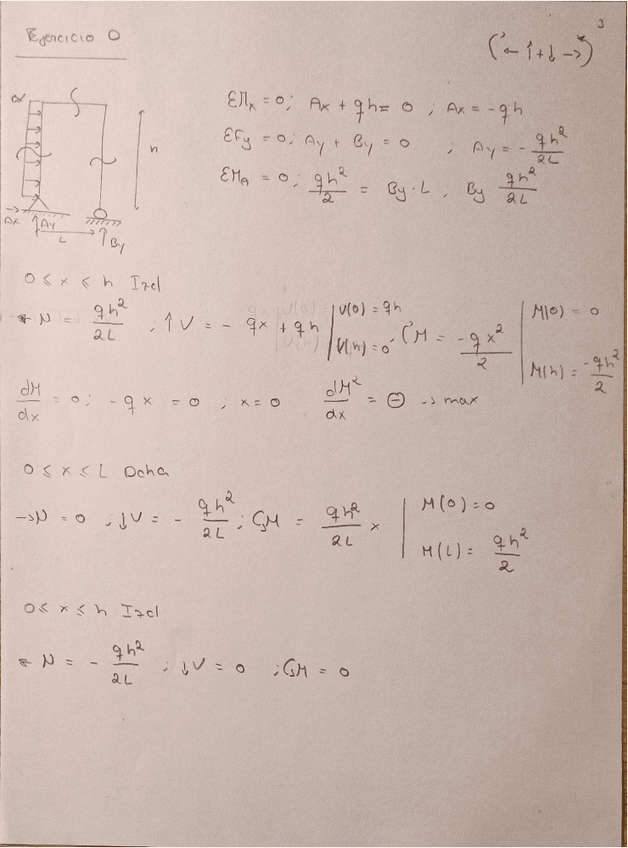 Ejercicio 0
3
(← ↑+↓ →)
q
h
Ax
Ay
L
By
ΣMx = 0; Ax + qh = 0 ; Ax = -qh
ΣFy = 0; Ay + By = 0 ; Ay = - qh²/2L
ΣMA = 0; qh²/2 = By·L ; By qh²/2L
0 ≤ x ≤ h Izd
← N = qh²/2L ; ↑V = - qx + qh | V(0) = qh V(h) = 0 ; M = -qx²/2 | M(0) = 0 M(h) = -qh²/2
dM/dx = 0; -qx = 0 ; x = 0 dM²/dx = ⊖ → max
0 ≤ x ≤ L Dcha
→N = 0 ; ↓V = - qh²/2L ; M = qh²/2L x | M(0) = 0 M(L) = qh²/2
0 ≤ x ≤ h Izd
← N = - qh²/2L ; ↓V = 0 ; M = 0